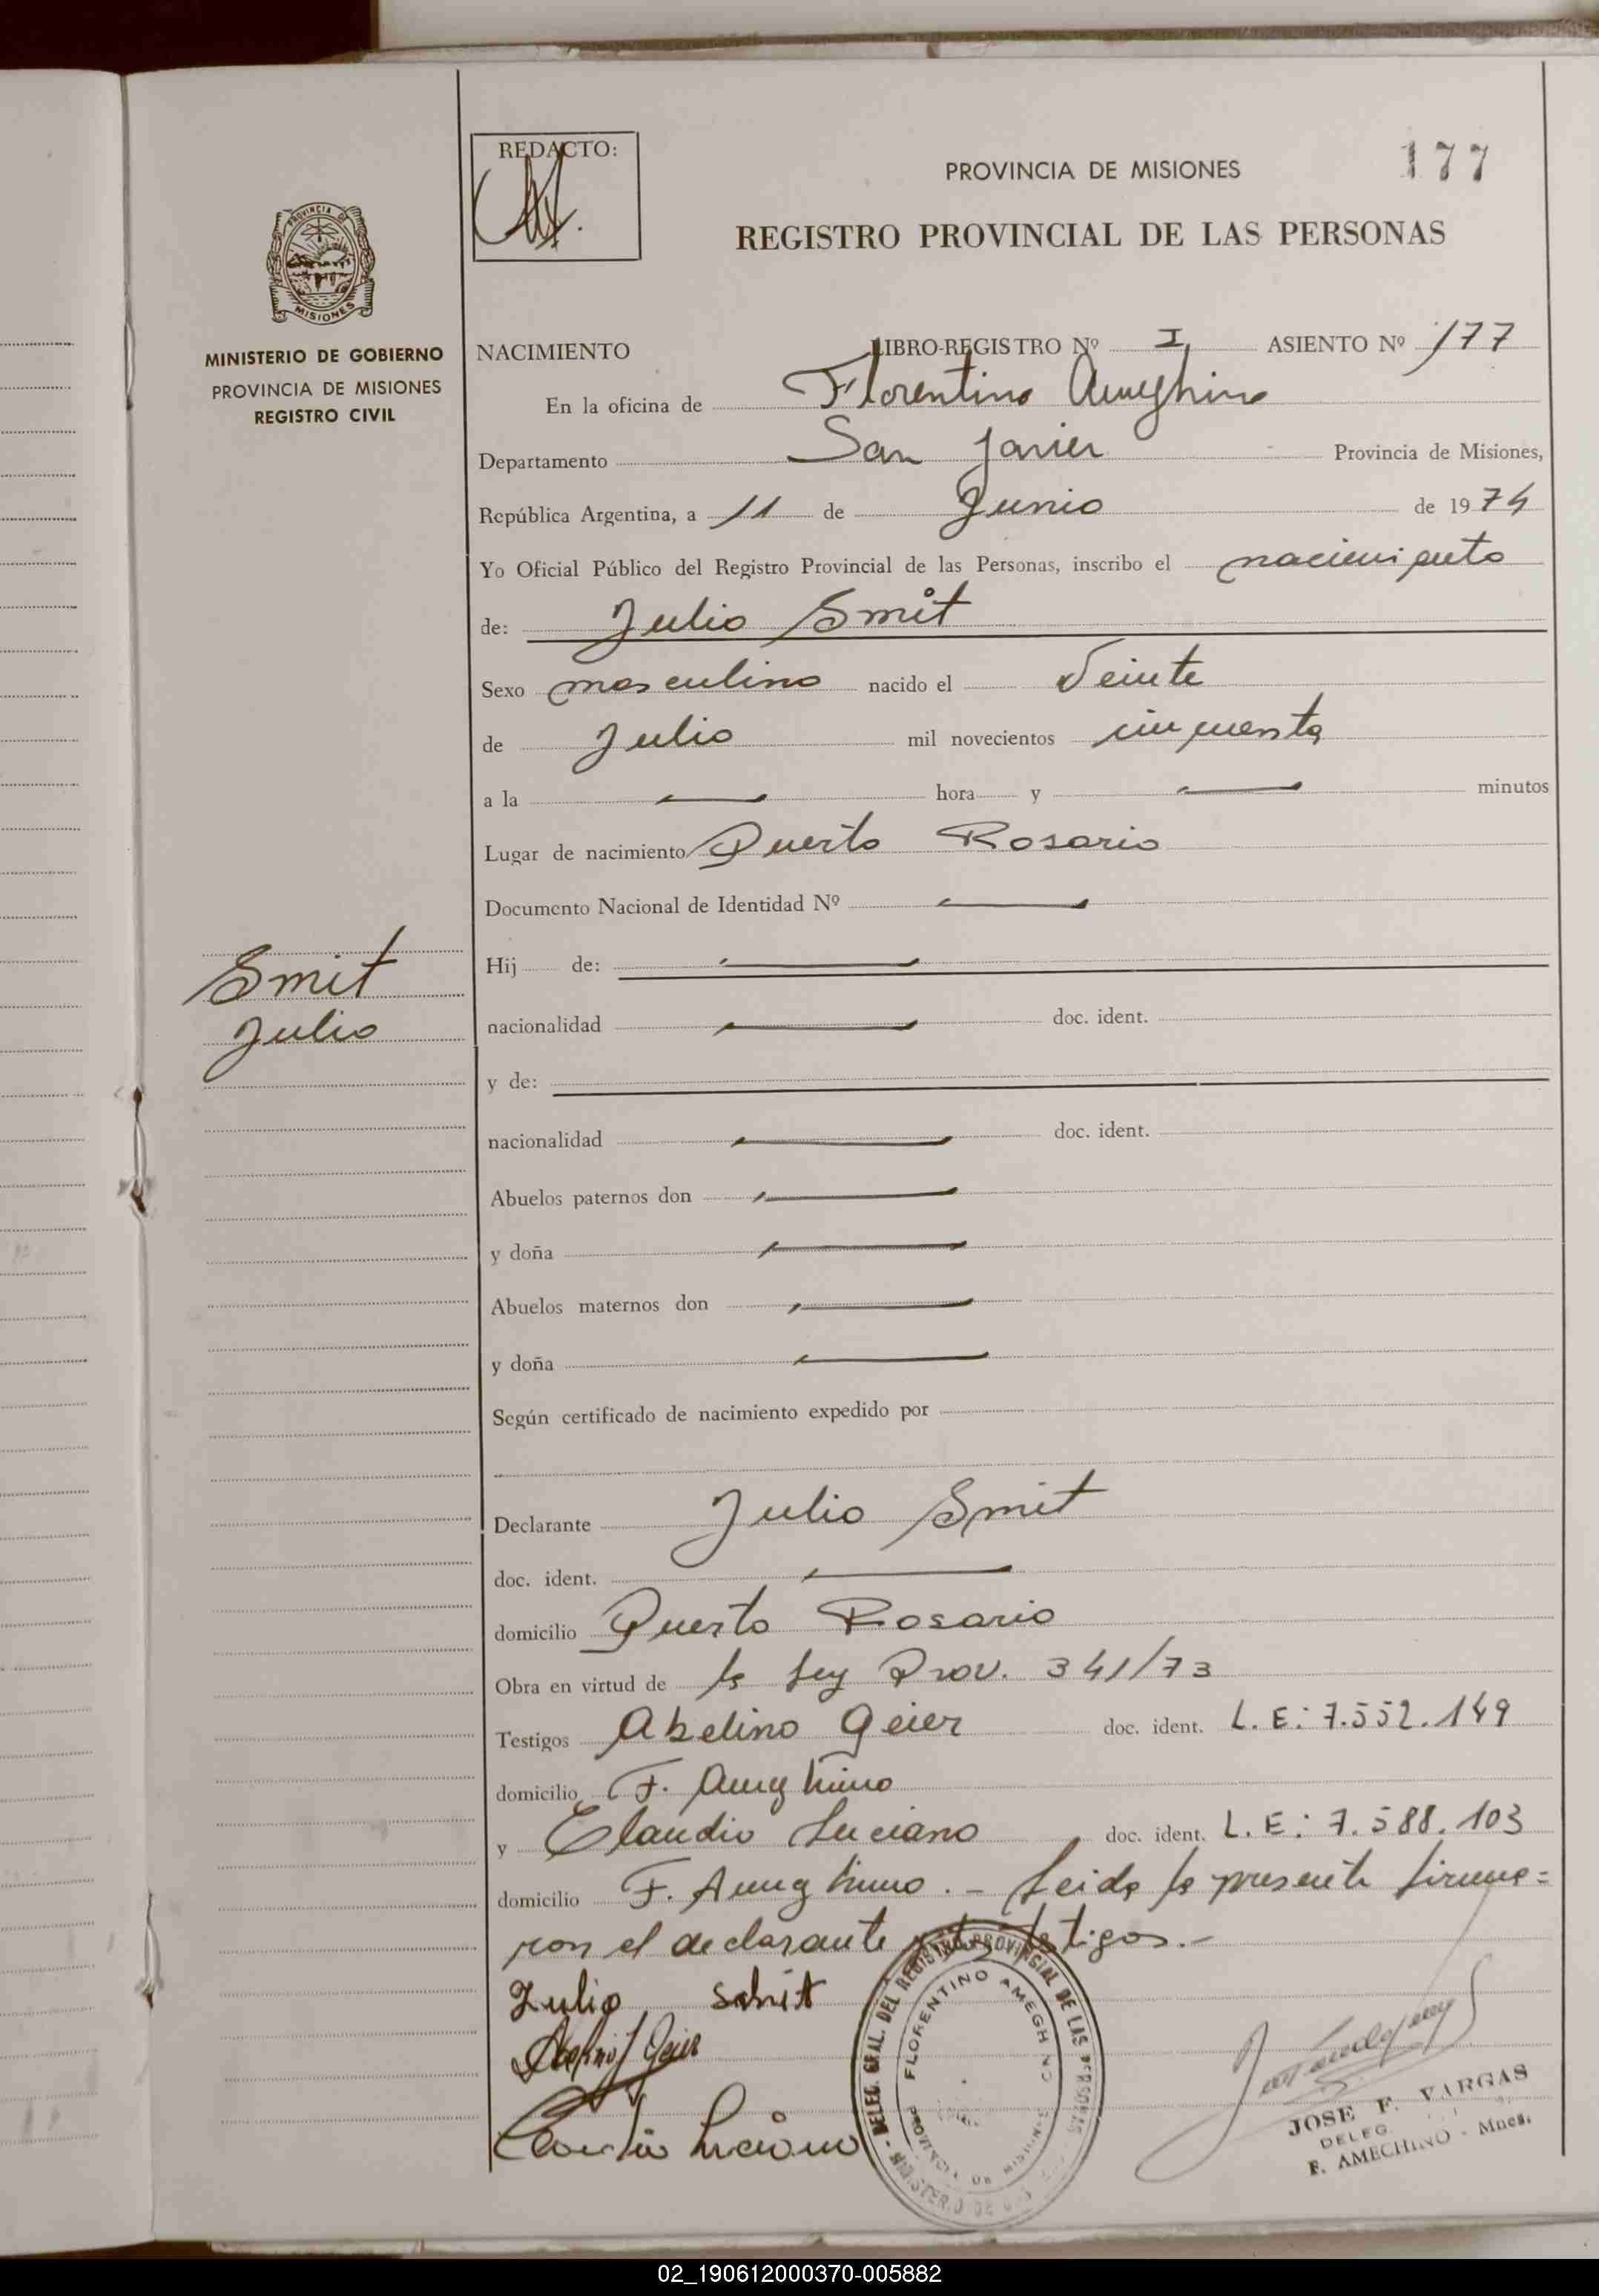 177
REDACTO:
PROVINCIA DE MISIONES
REGISTRO PROVINCIAL DE LAS PERSONAS
PROVINCIA DE
MISIONES
MINISTERIO DE GOBIERNO
PROVINCIA DE MISIONES
REGISTRO CIVIL
NACIMIENTO LIBRO-REGISTRO Nº I ASIENTO Nº 177
En la oficina de Florentino Ameghino
Departamento San Javier Provincia de Misiones,
República Argentina, a 11 de Junio de 1974
Yo Oficial Público del Registro Provincial de las Personas, inscribo el nacimiento
de: Julio Smit
Sexo masculino nacido el Veinte
de Julio mil novecientos cincuenta
a la — hora y — minutos
Lugar de nacimiento Puerto Rosario
Documento Nacional de Identidad Nº —
Hij de: —
Smit
Julio
nacionalidad — doc. ident.
y de:
nacionalidad — doc. ident.
Abuelos paternos don —
y doña —
Abuelos maternos don —
y doña —
Según certificado de nacimiento expedido por
Declarante Julio Smit
doc. ident. —
domicilio Puerto Rosario
Obra en virtud de la Ley Prov. 341/73
Testigos Abelino Geier doc. ident. L. E: 7.552.149
domicilio F. Ameghino
y Claudio Luciano doc. ident. L. E: 7.588.103
domicilio F. Ameghino. - Leida la presente firma=
ron el declarante testigos.-
Julio Schit
Geier
Luciano
DELEG. GRAL. DEL REGISTRO PROVINCIAL DE LAS PERSONAS
FLORENTINO AMEGHINO
PROVINCIA DE MISIONES
JOSE F. VARGAS
DELEG.
F. AMECHINO - Mnes.
02_190612000370-005882